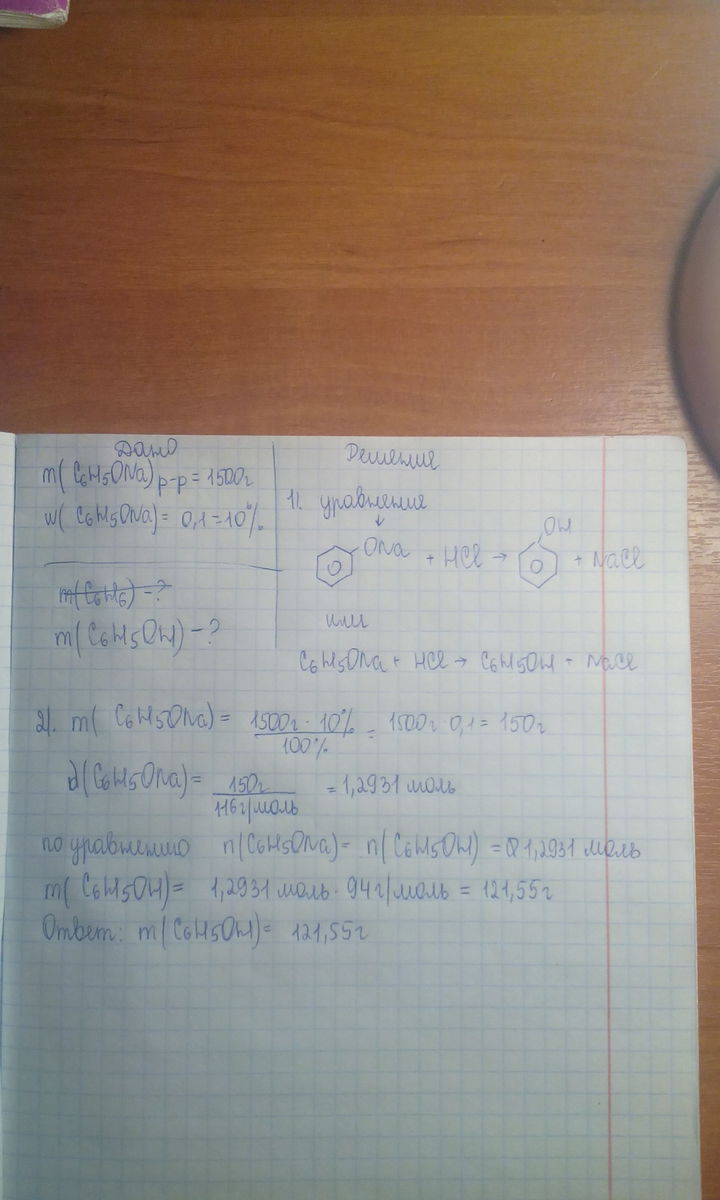 Дано
m(C6H5ONa)р-р = 1500г
w(C6H5ONa) = 0,1 = 10%
m(C6H6) - ?
m(C6H5OH) - ?
Решения
1). уравнения
ONa + HCl → OH + NaCl
или
C6H5ONa + HCl → C6H5OH + NaCl
2). m(C6H5ONa) = 1500г · 10% / 100% = 1500г · 0,1 = 150г
d(C6H5ONa) = 150г / 116г/моль = 1,2931 моль
по уравнению n(C6H5ONa) = n(C6H5OH) = 1,2931 моль
m(C6H5OH) = 1,2931 моль · 94г/моль = 121,55г
Ответ: m(C6H5OH) = 121,55г